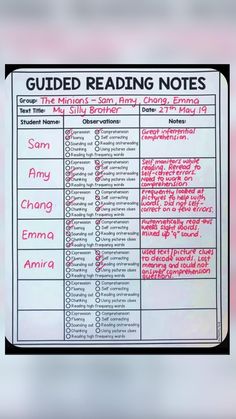 GUIDED READING NOTES
Group: The Minions - Sam, Amy, Chang, Emma
Text Title: My Silly Brother Date: 27th May 19
Student Name: Observations: Notes:
Sam
Expression Comprehension
Fluency Self correcting
Sounding out Reading on/rereading
Chunking Using pictures clues
Reading high frequency words
Great inferential
comprehension.
Amy
Expression Comprehension
Fluency Self correcting
Sounding out Reading on/rereading
Chunking Using pictures clues
Reading high frequency words
Self monitors while
reading. Reread to
self-correct errors.
need to work on
comprehension
Chang
Expression Comprehension
Fluency Self correcting
Sounding out Reading on/rereading
Chunking Using pictures clues
Reading high frequency words
Frequently looked at
pictures to help with
words. Did not self-
correct on a few errors.
Emma
Expression Comprehension
Fluency Self correcting
Sounding out Reading on/rereading
Chunking Using pictures clues
Reading high frequency words
Automatically read this
weeks sight words.
Mixed up "a" sound.
Amira
Expression Comprehension
Fluency Self correcting
Sounding out Reading on/rereading
Chunking Using pictures clues
Reading high frequency words
Used text/picture clues
to decode words. Lost
meaning and could not
answer comprehension
questions.
Expression Comprehension
Fluency Self correcting
Sounding out Reading on/rereading
Chunking Using pictures clues
Reading high frequency words
Expression Comprehension
Fluency Self correcting
Sounding out Reading on/rereading
Chunking Using pictures clues
Reading high frequency words